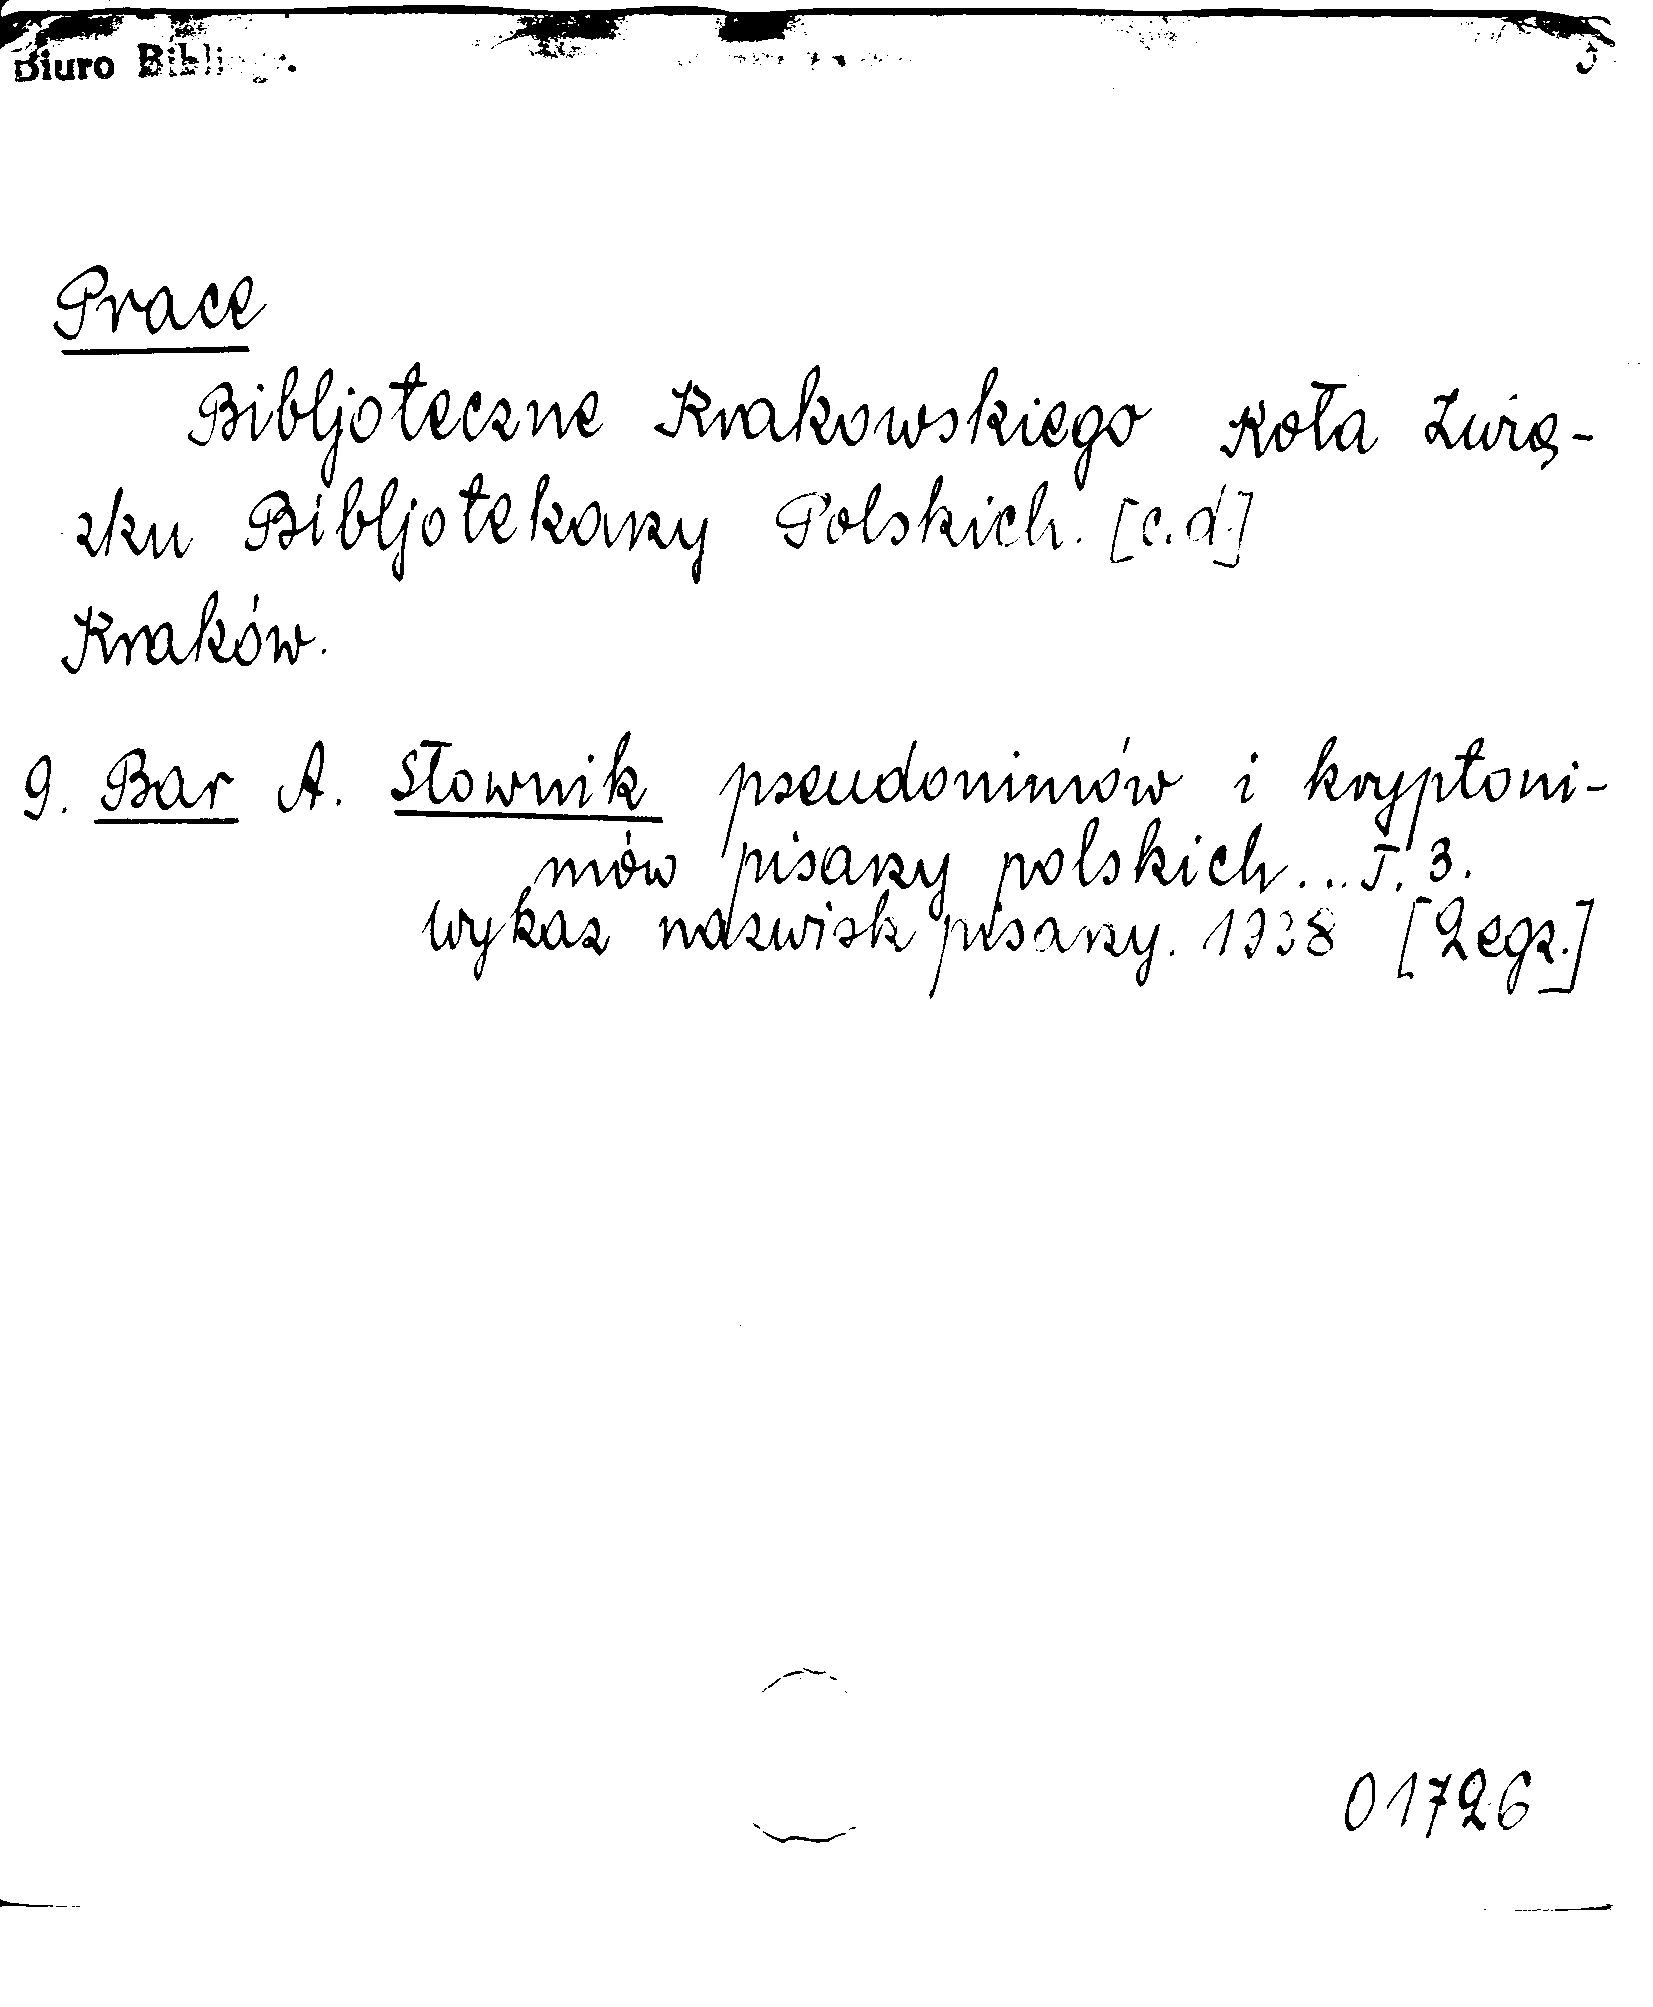 Biuro Bibliogr. 5
Prace
Bibljoteczne Krakowskiego Koła Zwią-
zku Bibljotekarzy Polskich. [c.d.]
Kraków.
9. Bar A. Słownik pseudonimów i kryptoni-
mów pisarzy polskich... T. 3.
Wykaz nazwisk pisarzy. 1938 [2 egz.]
01726